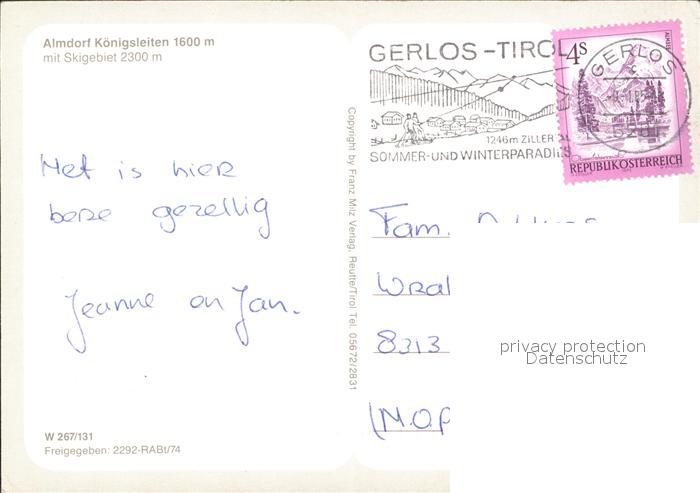 Almdorf Königsleiten 1600 m
mit Skigebiet 2300 m
Het is hier
bere gezellig
Jeanne en Jan.
W 267/131
Freigegeben: 2292-RABt/74
Copyright by Franz Milz Verlag, Reutte/Tirol Tel. 05672/2831
GERLOS-TIROL
1246m ZILLER
SOMMER-UND WINTERPARADIES
4S
REPUBLIK ÖSTERREICH
GERLOS
Fam.
8313
privacy protection
Datenschutz